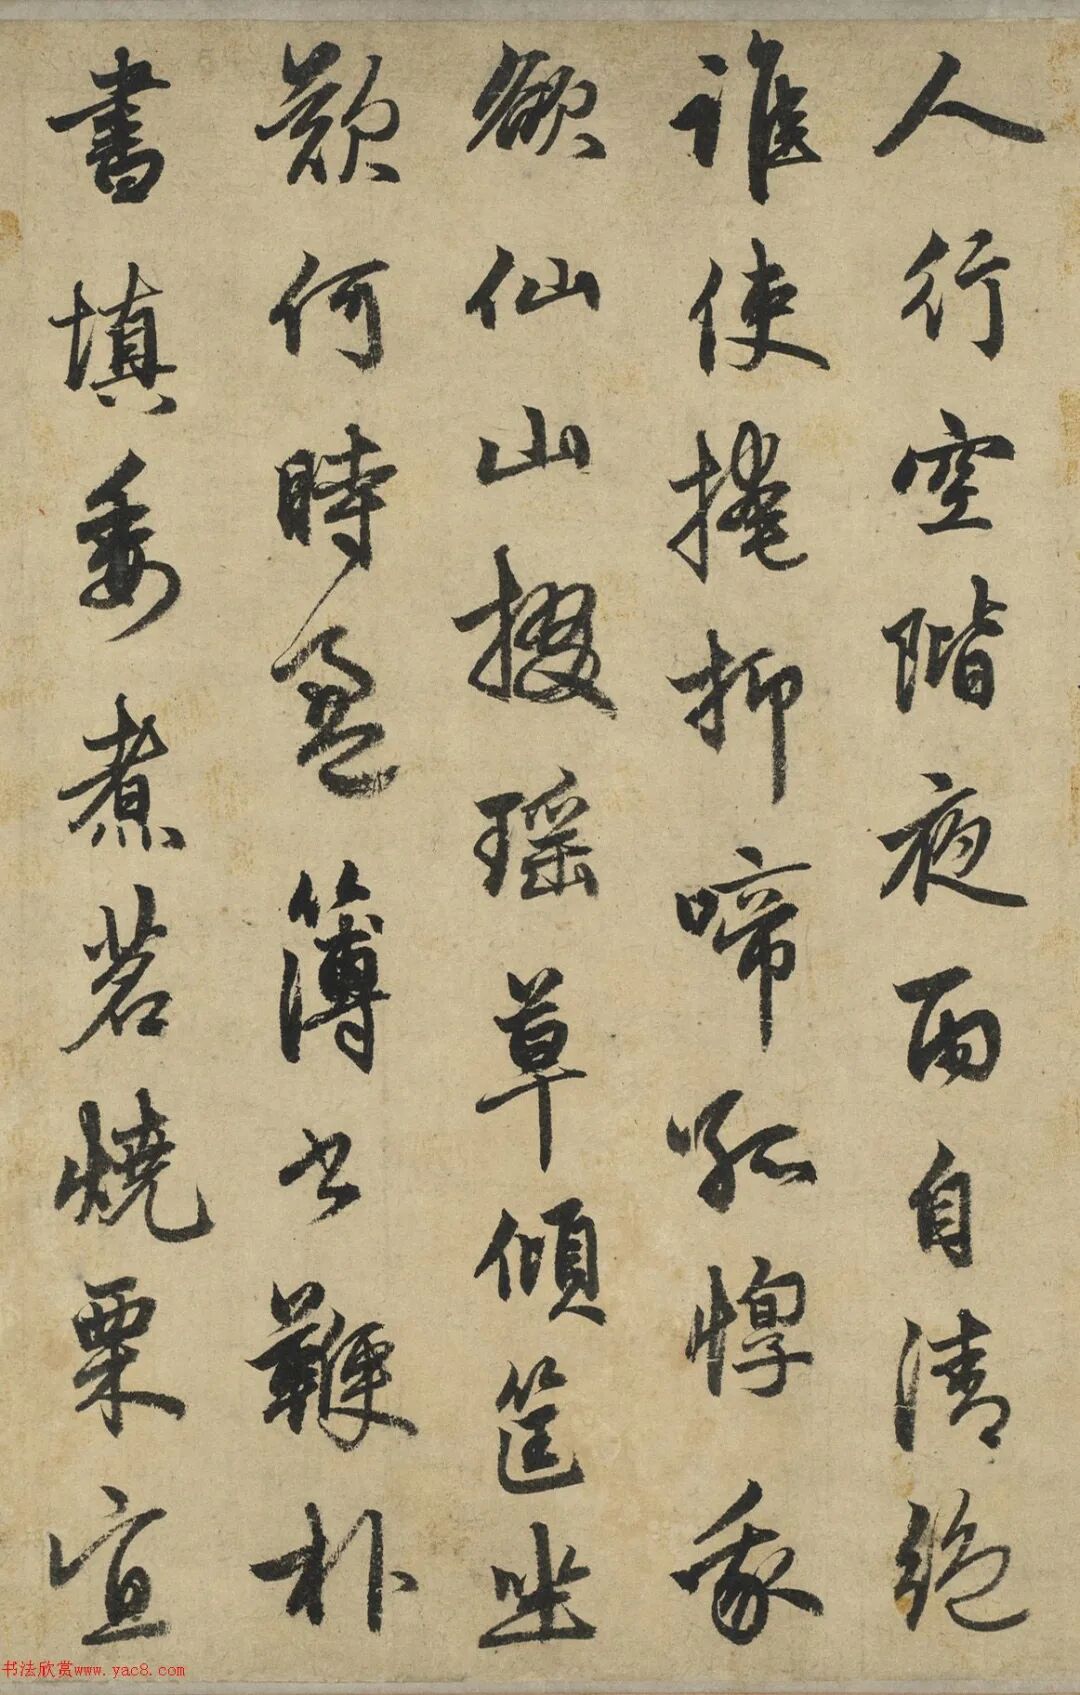 人行空階夜雨自清絶
誰使掩抑啼孤惸我
欲仙山掇瑶草傾筐坐
歎何時盈簿書鞭朴
晝填委煮茗燒栗宜
书法欣赏www.yac8.com